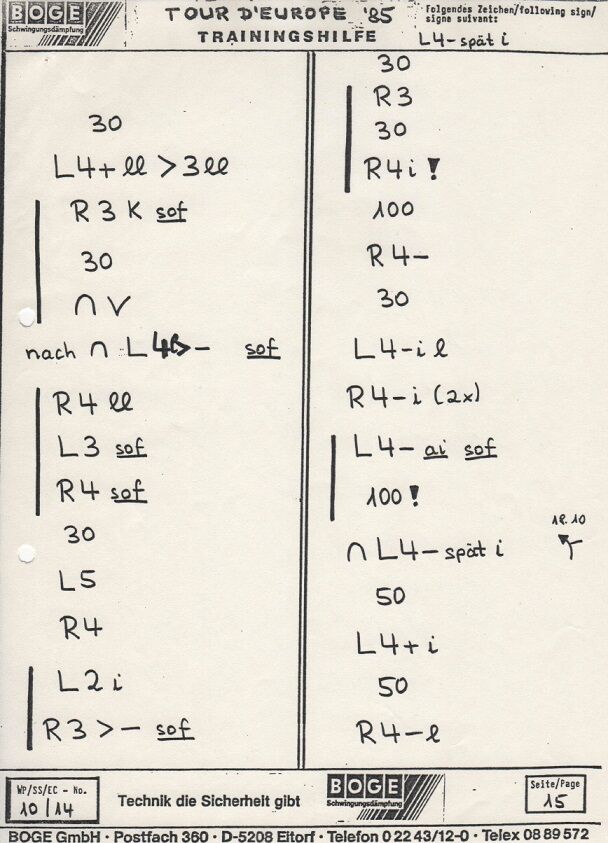 BOGE
Schwingungsdämpfung
TOUR D'EUROPE '85
TRAININGSHILFE
Folgendes Zeichen/following sign/
signe suivant:
L4-spät i
30
L4+ ll > 3ll
R3 K sof
30
∩ v
nach ∩ L4 >- sof
R4 ll
L3 sof
R4 sof
30
L5
R4
L2 i
R3 >- sof
30
R3
30
R4i !
100
R4-
30
L4-i l
R4-i (2x)
L4- ai sof
100 !
∩ L4- spät i
18.10
50
L4+i
50
R4-l
WP/SS/EC - No.
10/14
Technik die Sicherheit gibt
BOGE
Schwingungsdämpfung
Seite/Page
15
BOGE GmbH · Postfach 360 · D-5208 Eitorf · Telefon 0 22 43/12-0 · Telex 08 89 572